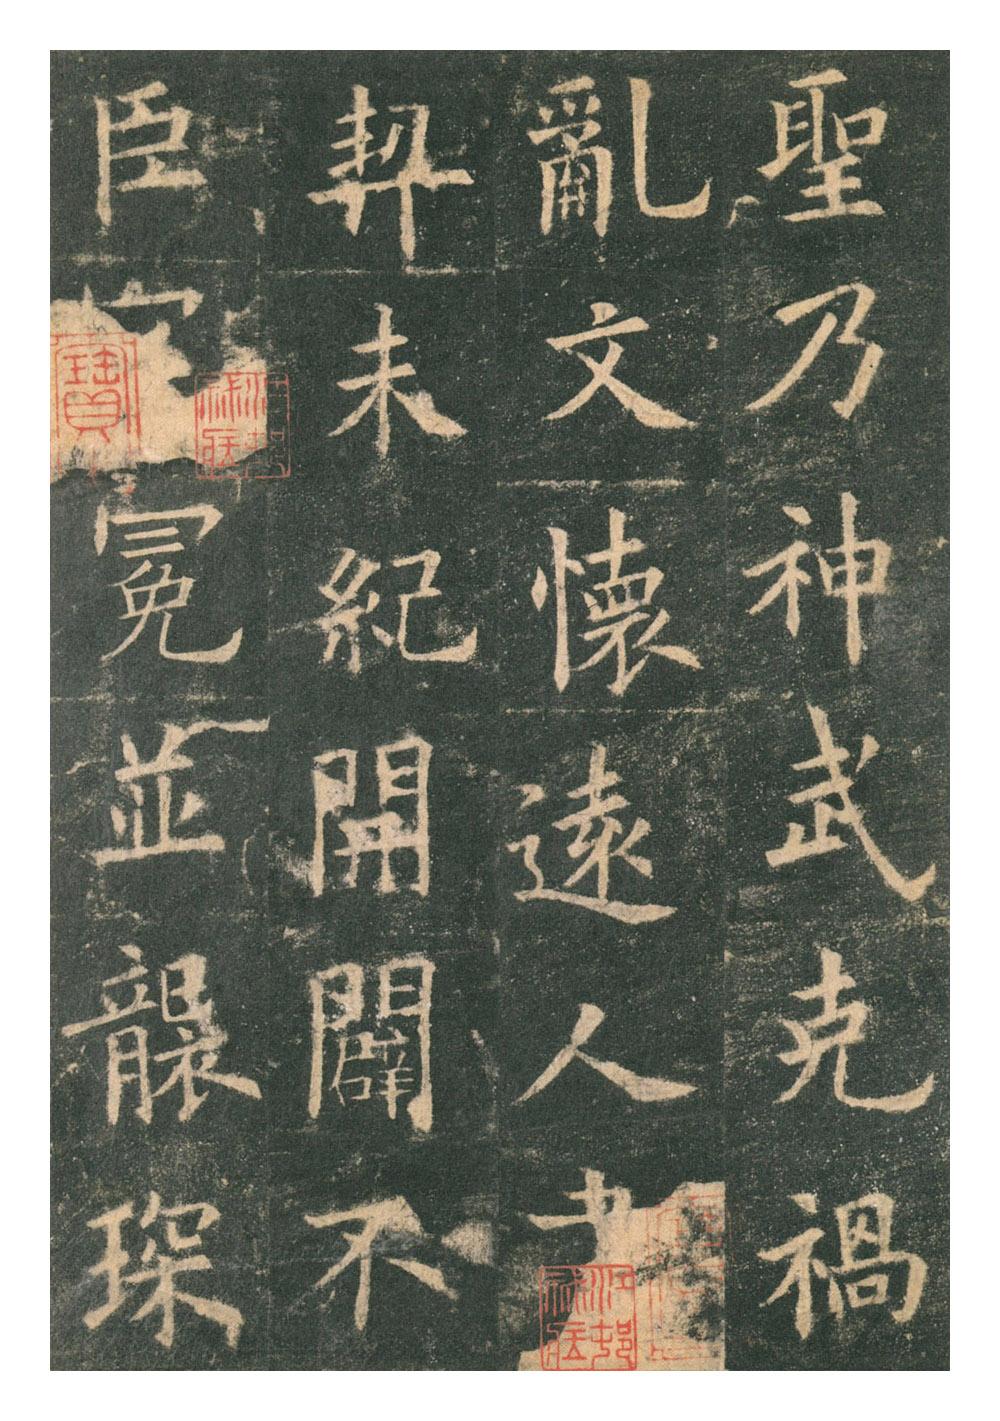 聖乃神武克禍
亂文懷遠人書
契未紀開闢不
臣冠冕並襲琛
寶